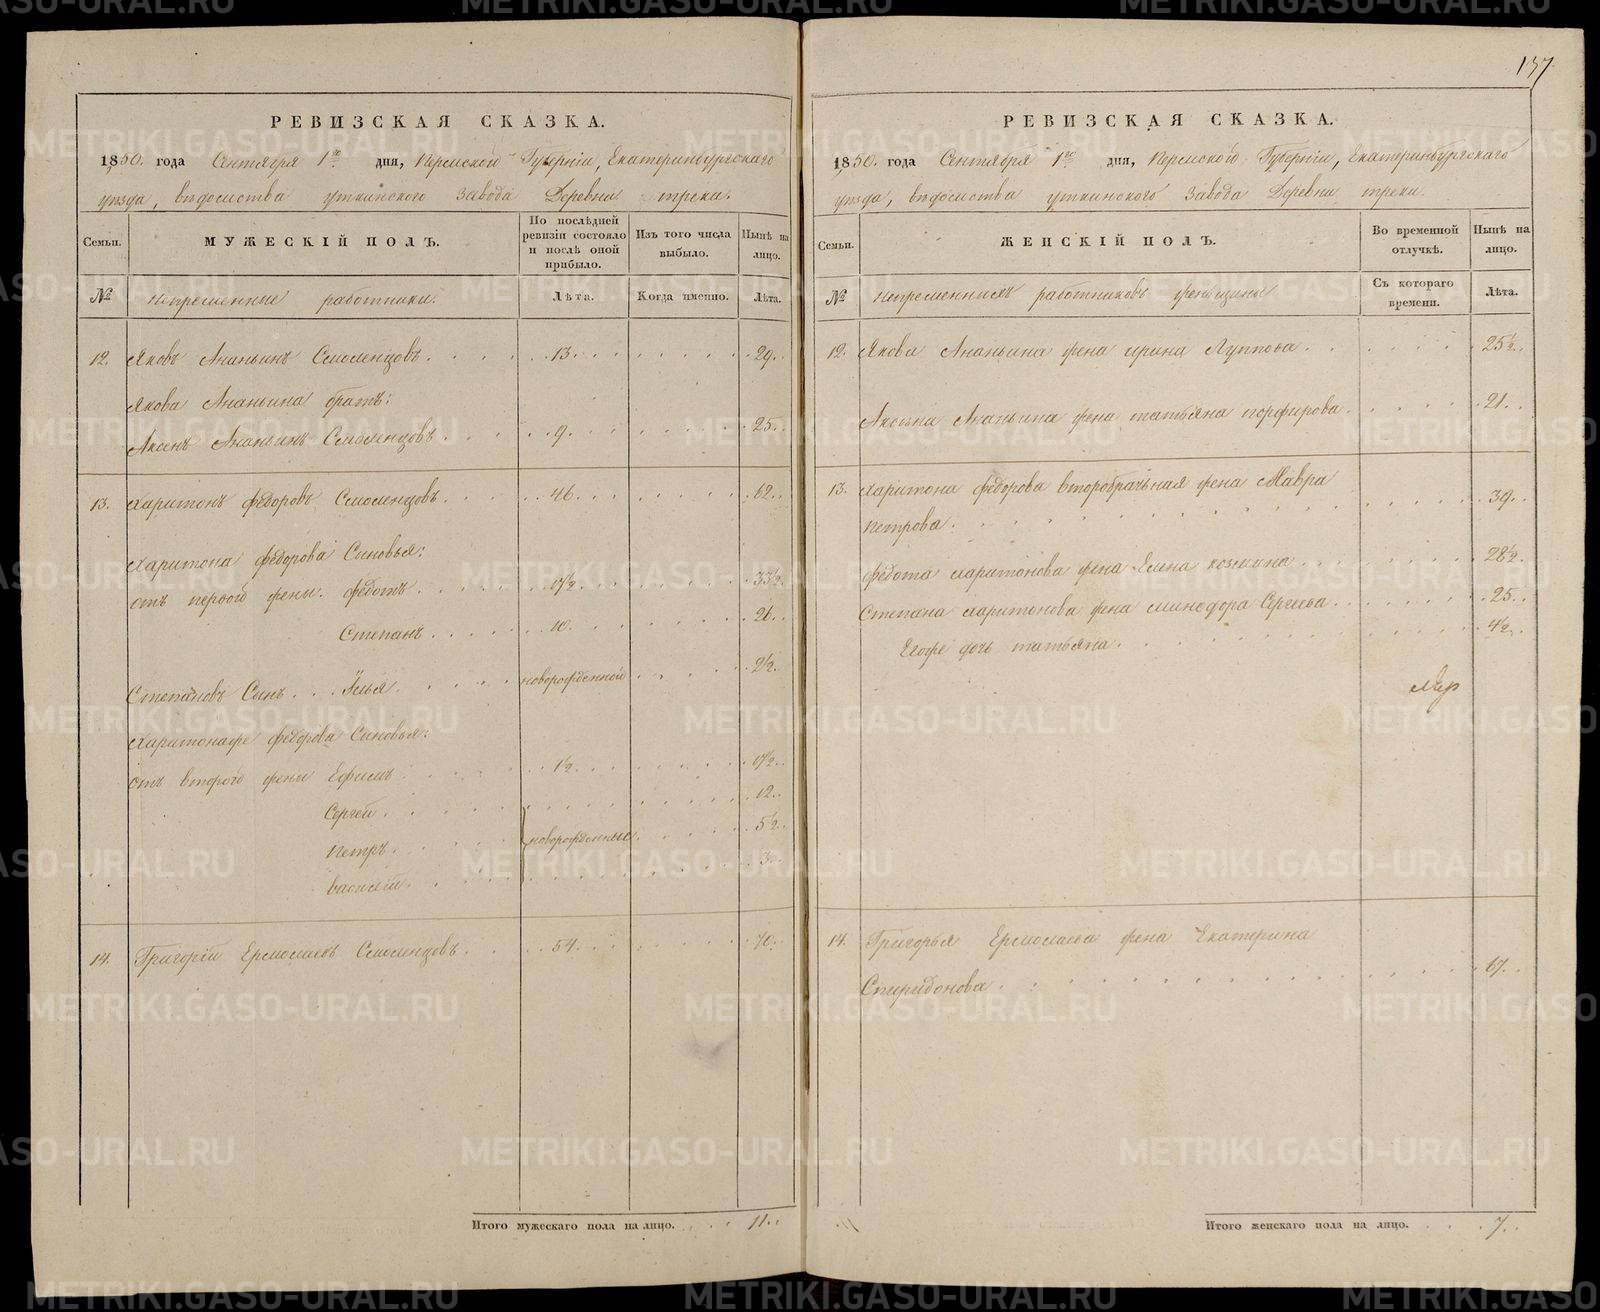 137
РЕВИЗСКАЯ СКАЗКА.
1850. года Сентября 1го дня, Пермской Губернiи, Екатеринбургскаго
уѣзда, вѣдомства уткинского Завода Деревни треки.
Семьи.
МУЖЕСКIЙ ПОЛЪ.
По последней ревизiи состояло и послѣ оной прибыло.
Изъ того числа выбыло.
Нынѣ на лицо.
№
непременные работники.
Лѣта.
Когда именно.
Лѣта.
12. Яковъ Ананьинъ Смоленцовъ. 13. 29.
Якова Ананьина братъ:
Аксенъ Ананьинъ Смоленцовъ. 9. 25.
13. Харитонъ Федоровъ Смоленцовъ. 46. 62.
Харитона Федорова Сыновья:
отъ первой жены. Федотъ. 17½. 33½.
Степанъ. 10. 26.
Степановъ Сынъ. Илья. новорожденной 2½.
Харитонаже Федорова Сыновья:
отъ второй жены Ефимъ. 1½. 17½.
Сергей. 12.
Петръ. новорожденные. 5½.
василiй. 3.
14. Григорiй Ермолаевъ Смоленцовъ. 54. 70.
Итого мужескаго пола на лицо. 11.
РЕВИЗСКАЯ СКАЗКА.
1850. года Сентября 1го дня, Пермской Губернiи, Екатеринбургскаго
уѣзда, вѣдомства уткинского Завода Деревни треки.
Семьи.
ЖЕНСКIЙ ПОЛЪ.
Во временной отлучкѣ.
Нынѣ на лицо.
№
непременныхъ работниковъ женщины
Съ котораго времени.
Лѣта.
12. Якова Ананьина жена ирина Луппова. 25½.
Аксена Ананьина жена татьяна порфирова. 21.
13. Харитона Федорова второбрачная жена Мавра
Петрова. 39.
Федота харитонова жена Елена козмина 28½.
Степана харитонова жена минодора Сергеева. 25.
Егоже дочь татьяна. 4½.
14. Григорья Ермолаева жена Екатерина
Спиридонова. 67.
Итого женскаго пола на лицо. 7.
METRIKI.GASO-URAL.RU